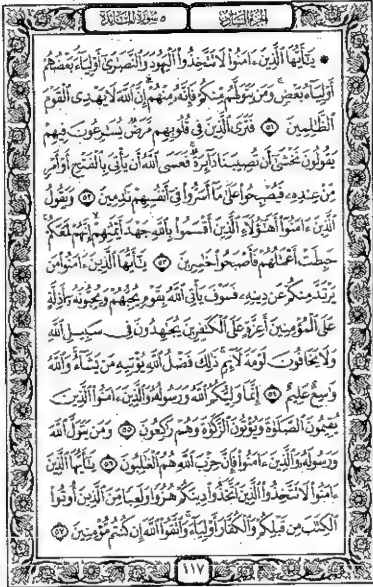 الجزء السادس ٥ سورة المائدة
* يَٰٓأَيُّهَا ٱلَّذِينَ ءَامَنُوا۟ لَا تَتَّخِذُوا۟ ٱلْيَهُودَ وَٱلنَّصَٰرَىٰٓ أَوْلِيَآءَ ۘ بَعْضُهُمْ
أَوْلِيَآءُ بَعْضٍ ۚ وَمَن يَتَوَلَّهُم مِّنكُمْ فَإِنَّهُۥ مِنْهُمْ ۗ إِنَّ ٱللَّهَ لَا يَهْدِى ٱلْقَوْمَ
ٱلظَّٰلِمِينَ ٥١ فَتَرَى ٱلَّذِينَ فِى قُلُوبِهِم مَّرَضٌ يُسَٰرِعُونَ فِيهِمْ
يَقُولُونَ نَخْشَىٰٓ أَن تُصِيبَنَا دَآئِرَةٌ ۚ فَعَسَى ٱللَّهُ أَن يَأْتِىَ بِٱلْفَتْحِ أَوْ أَمْرٍ
مِّنْ عِندِهِۦ فَيُصْبِحُوا۟ عَلَىٰ مَآ أَسَرُّوا۟ فِىٓ أَنفُسِهِمْ نَٰدِمِينَ ٥٢ وَيَقُولُ
ٱلَّذِينَ ءَامَنُوٓا۟ أَهَٰٓؤُلَآءِ ٱلَّذِينَ أَقْسَمُوا۟ بِٱللَّهِ جَهْدَ أَيْمَٰنِهِمْ ۙ إِنَّهُمْ لَمَعَكُمْ ۚ
حَبِطَتْ أَعْمَٰلُهُمْ فَأَصْبَحُوا۟ خَٰسِرِينَ ٥٣ يَٰٓأَيُّهَا ٱلَّذِينَ ءَامَنُوا۟ مَن
يَرْتَدَّ مِنكُمْ عَن دِينِهِۦ فَسَوْفَ يَأْتِى ٱللَّهُ بِقَوْمٍ يُحِبُّهُمْ وَيُحِبُّونَهُۥٓ أَذِلَّةٍ
عَلَى ٱلْمُؤْمِنِينَ أَعِزَّةٍ عَلَى ٱلْكَٰفِرِينَ يُجَٰهِدُونَ فِى سَبِيلِ ٱللَّهِ
وَلَا يَخَافُونَ لَوْمَةَ لَآئِمٍ ۚ ذَٰلِكَ فَضْلُ ٱللَّهِ يُؤْتِيهِ مَن يَشَآءُ ۚ وَٱللَّهُ
وَٰسِعٌ عَلِيمٌ ٥٤ إِنَّمَا وَلِيُّكُمُ ٱللَّهُ وَرَسُولُهُۥ وَٱلَّذِينَ ءَامَنُوا۟ ٱلَّذِينَ
يُقِيمُونَ ٱلصَّلَوٰةَ وَيُؤْتُونَ ٱلزَّكَوٰةَ وَهُمْ رَٰكِعُونَ ٥٥ وَمَن يَتَوَلَّ ٱللَّهَ
وَرَسُولَهُۥ وَٱلَّذِينَ ءَامَنُوا۟ فَإِنَّ حِزْبَ ٱللَّهِ هُمُ ٱلْغَٰلِبُونَ ٥٦ يَٰٓأَيُّهَا ٱلَّذِينَ
ءَامَنُوا۟ لَا تَتَّخِذُوا۟ ٱلَّذِينَ ٱتَّخَذُوا۟ دِينَكُمْ هُزُوًا وَلَعِبًا مِّنَ ٱلَّذِينَ أُوتُوا۟
ٱلْكِتَٰبَ مِن قَبْلِكُمْ وَٱلْكُفَّارَ أَوْلِيَآءَ ۚ وَٱتَّقُوا۟ ٱللَّهَ إِن كُنتُم مُّؤْمِنِينَ ٥٧
١١٧